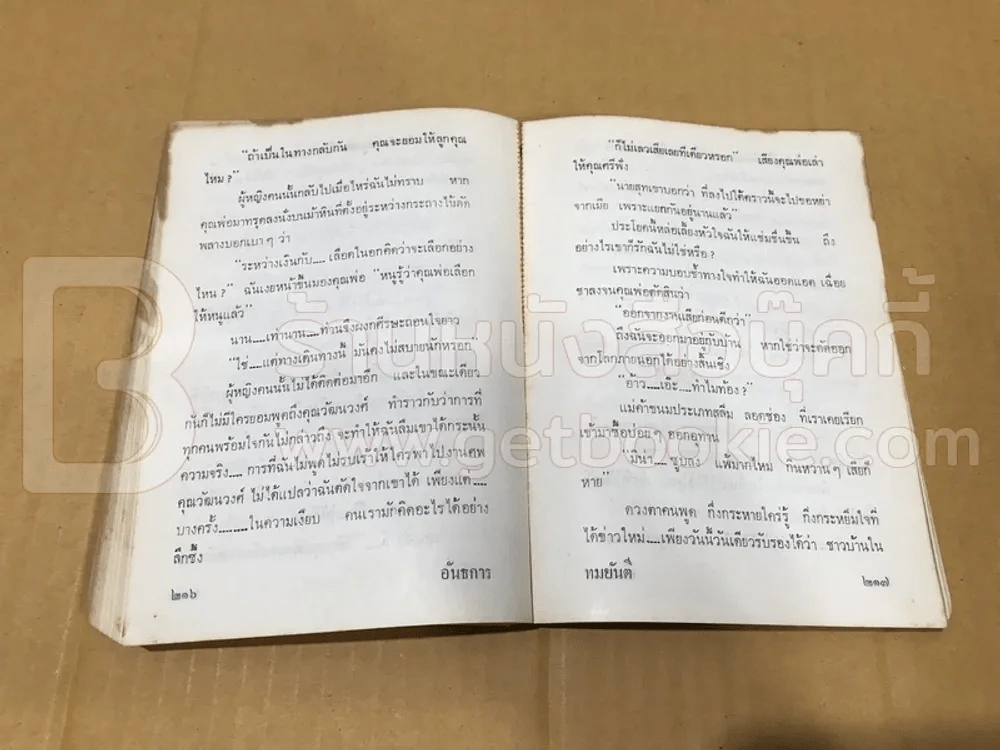 "ถ้าเป็นในทางกลับกัน คุณจะยอมให้ลูกคุณ
ไหม ?"
ผู้หญิงคนนั้นกลับไปเมื่อไหร่ฉันไม่ทราบ หาก
คุณพ่อมาทรุดลงนั่งบนม้าหินที่ตั้งอยู่ระหว่างกระถางไม้ดัด
พลางบอกเบา ๆ ว่า
"ระหว่างเงินกับ..... เลือดในอกคิดว่าจะเลือกอย่าง
ไหน ?" ฉันเงยหน้าขึ้นมองคุณพ่อ "หนูรู้ว่าคุณพ่อเลือก
ให้หนูแล้ว"
นาน.....เท่านาน.....ท่านจึงผงกศีรษะถอนใจยาว
"ใช่.....แต่ทางเดินทางนี้ มันคงไม่สบายนักหรอก"
ผู้หญิงคนนั้นไม่ได้ติดต่อมาอีก และในขณะเดียว
กันก็ไม่มีใครยอมพูดถึงคุณวัฒนวงศ์ ทำราวกับว่าการที่
ทุกคนพร้อมใจกันไม่กล่าวถึง จะทำให้ฉันลืมเขาได้กระนั้น
ความจริง..... การที่ฉันไม่พูด ไม่รบเร้าให้ใครพาไปงานศพ
คุณวัฒนวงศ์ ไม่ได้แปลว่าฉันตัดใจจากเขาได้ เพียงแต่.....
บางครั้ง.........ในความเงียบ คนเรามักคิดอะไรได้อย่าง
ลึกซึ้ง
อันธการ
๒๑๖
"ก็ไม่เลวเสียเลยทีเดียวหรอก" เสียงคุณพ่อเล่า
ให้คุณศรีฟัง
"นายสุทเขาบอกว่า ที่ลงไปใต้คราวนั้นจะไปขอหย่า
จากเมีย เพราะแยกกันอยู่นานแล้ว"
ประโยคนี้หล่อเลี้ยงหัวใจฉันให้แช่มชื่นขึ้น ถึง
อย่างไรเขาก็รักฉันไม่ใช่หรือ ?
เพราะความบอบช้ำทางใจทำให้ฉันออดแอด เฉื่อย
ชาลงจนคุณพ่อตัดสินว่า
"ออกจากงานเสียก่อนดีกว่า"
ถึงฉันจะออกมาอยู่กับบ้าน หากใช่ว่าจะตัดออก
จากโลกภายนอกได้อย่างสิ้นเชิง
"อ้าว.....เอ๊ะ.....ทำไมท้อง ?"
แม่ค้าขนมประเภทสลิ่ม ลอดช่อง ที่เราเคยเรียก
เข้ามาซื้อบ่อย ๆ ออกอุทาน
"มิน่า.....ซูบลง แพ้มากไหม กินหวานๆ เสียก็
หาย"
ดวงตาคนพูด กึ่งกระหายใคร่รู้ กึ่งกระหยิ่มใจที่
ได้ข่าวใหม่.....เพียงวันนี้วันเดียวรับรองได้ว่า ชาวบ้านใน
ทมยันตี
๒๑๗
ร้านหนังสือบุ๊คกี้
www.getbookie.com